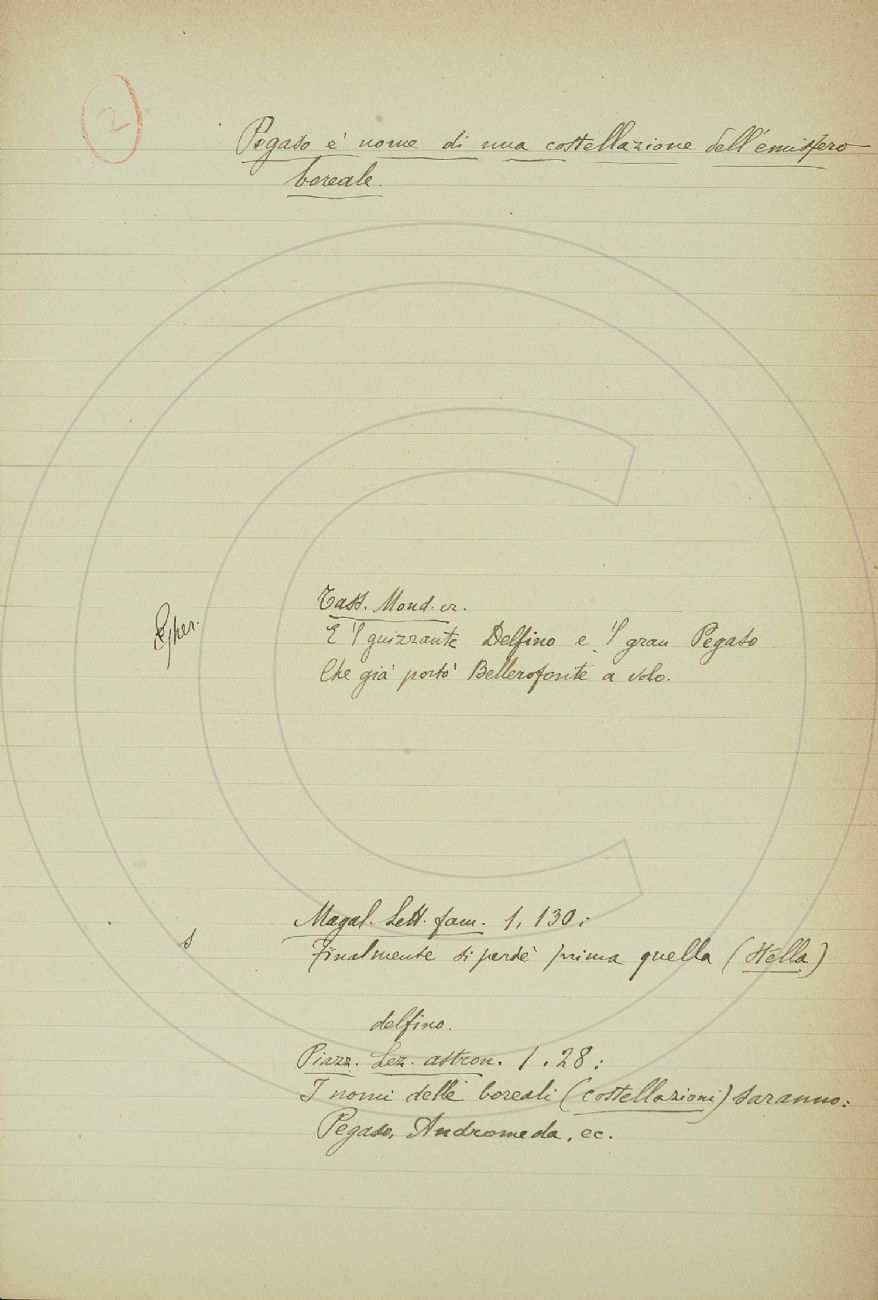 2
Pegaso è nome di una costellazione dell'emisfero
boreale.
Tass. Mond. cr.
E 'l guizzante Delfino e 'l gran Pegaso
Che già portò Bellerofonte a volo.
s
Magal. Lett. fam. 1, 130:
Finalmente si perdè prima quella (stella)
delfino.
Piazz. Lez. astron. 1. 28:
I nomi delle boreali (costellazioni) saranno:
Pegaso, Andromeda, ec.